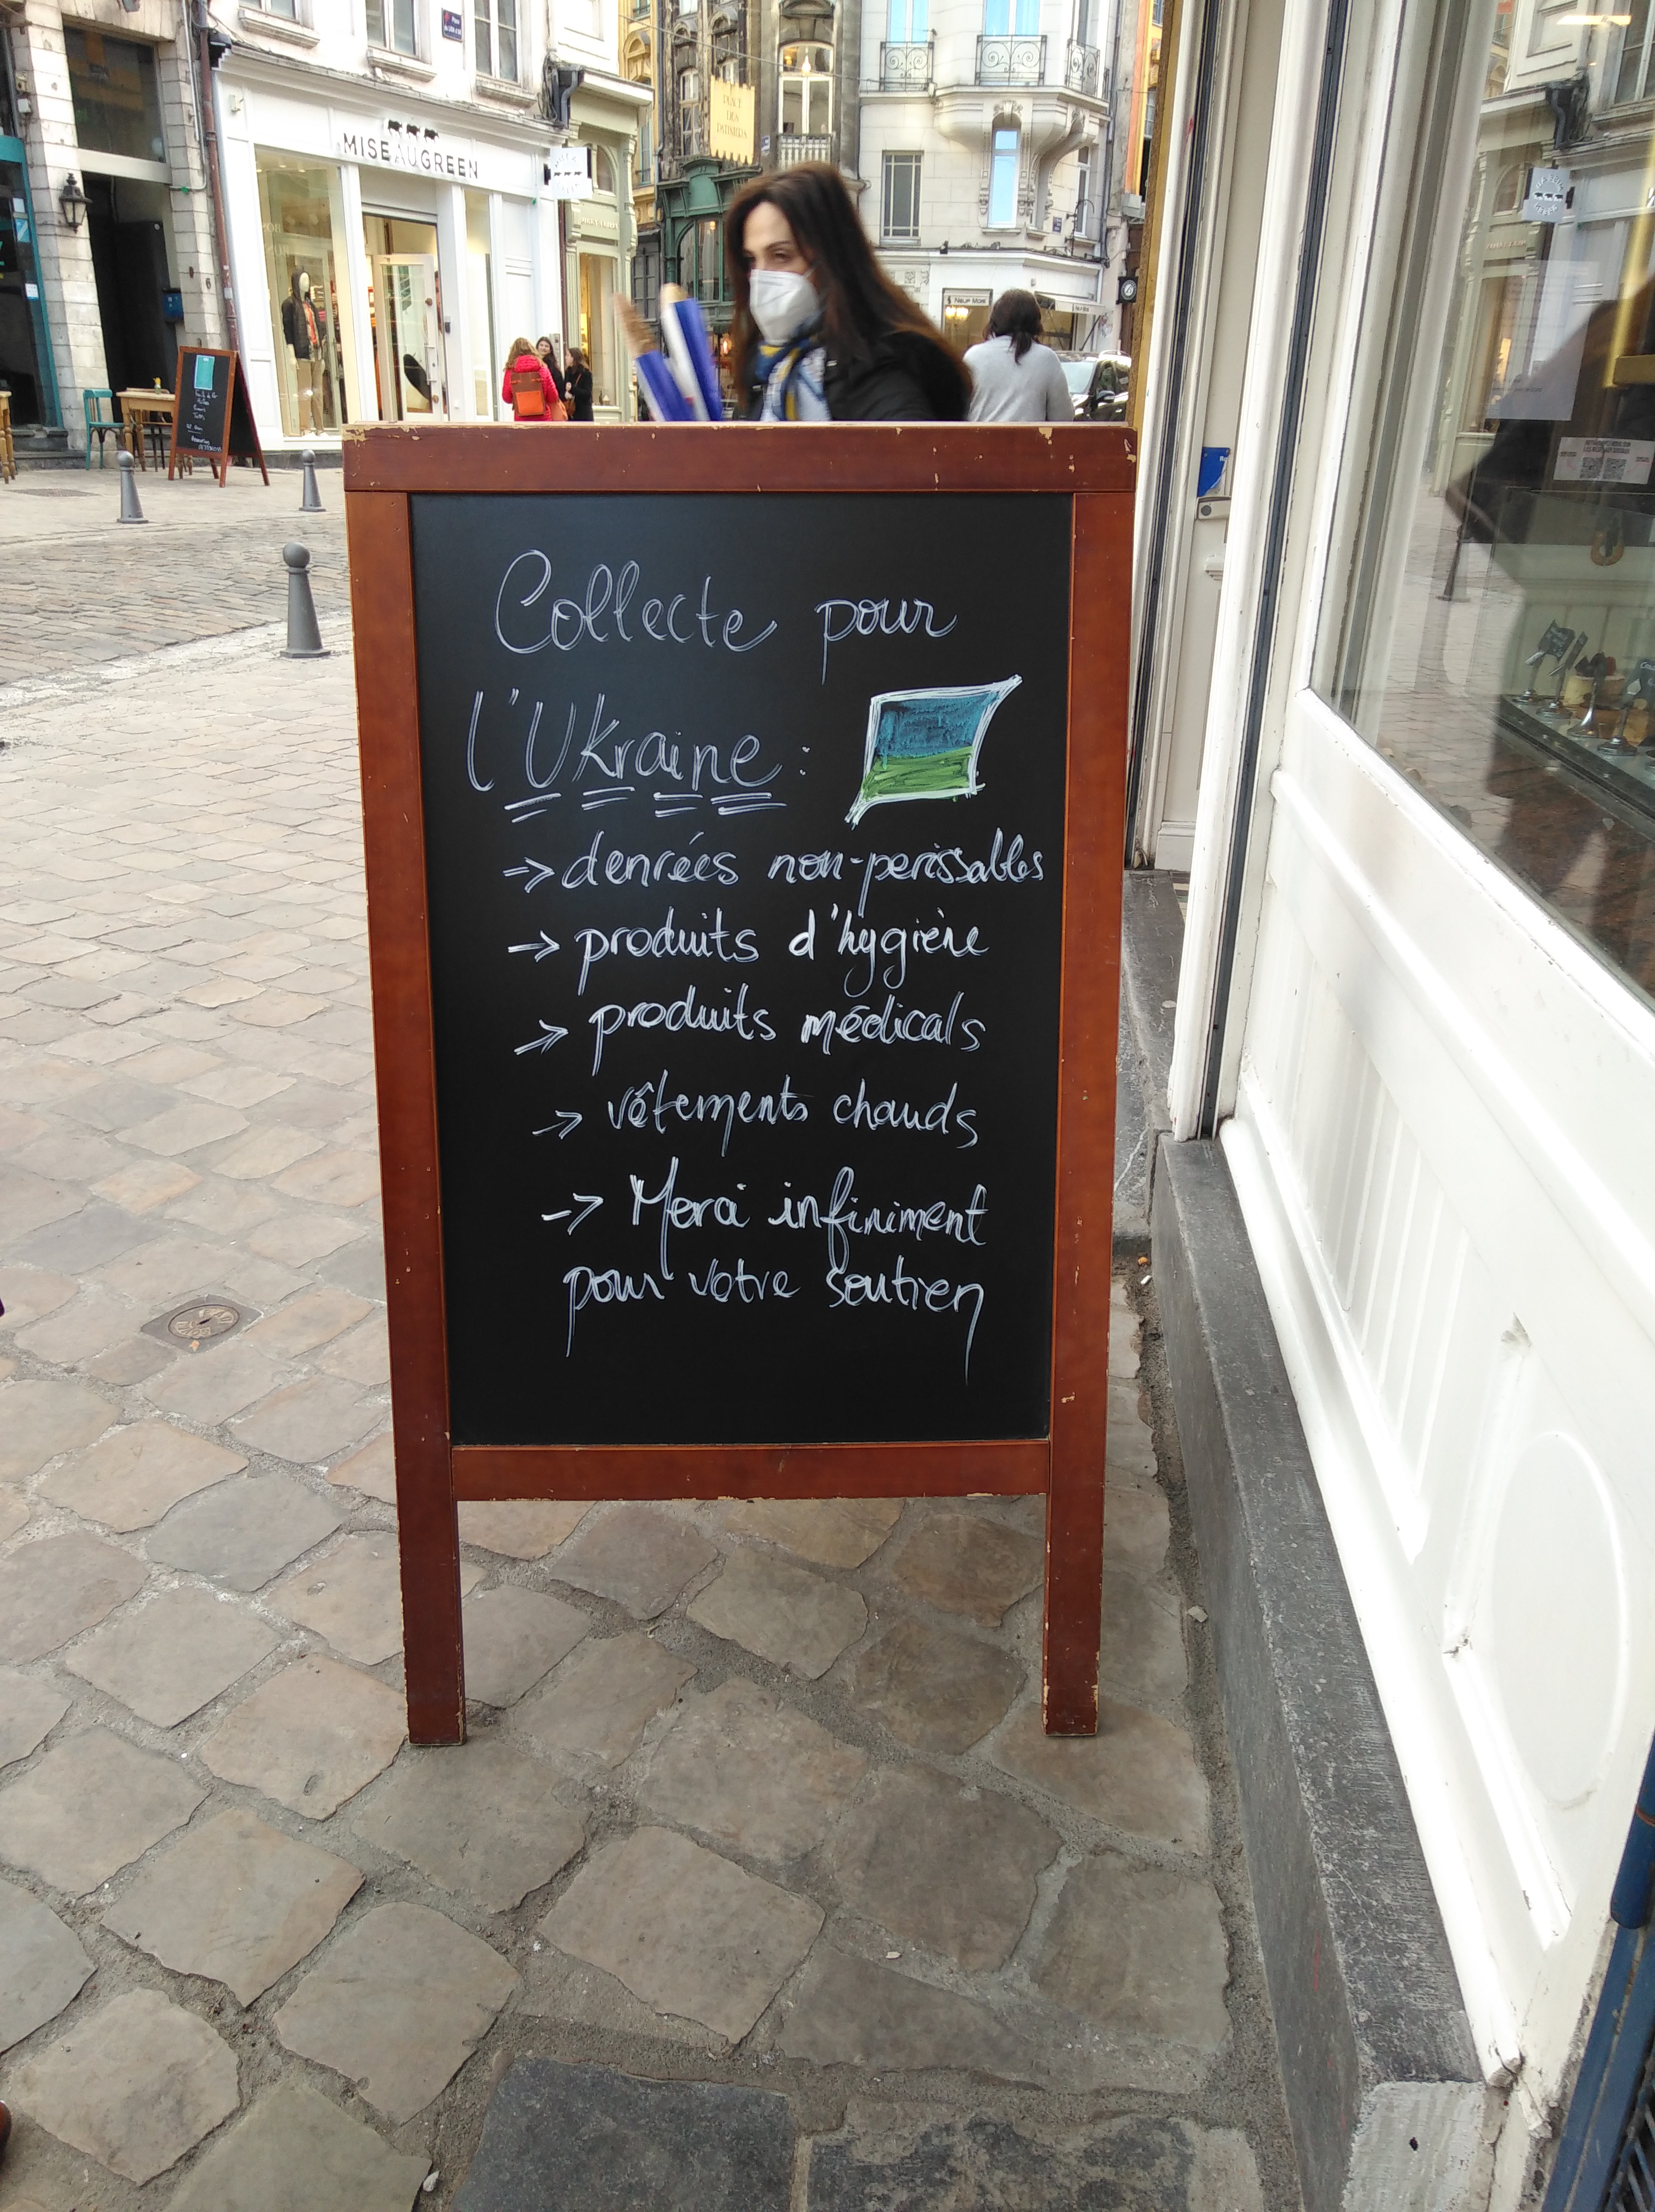 MISE AU GREEN
PLACE
DES
PATINIERS
Collecte pour
l'Ukraine :
-> denrées non-perissables
-> produits d'hygiène
-> produits médicals
-> vêtements chauds
-> Merci infiniment
pour votre soutien